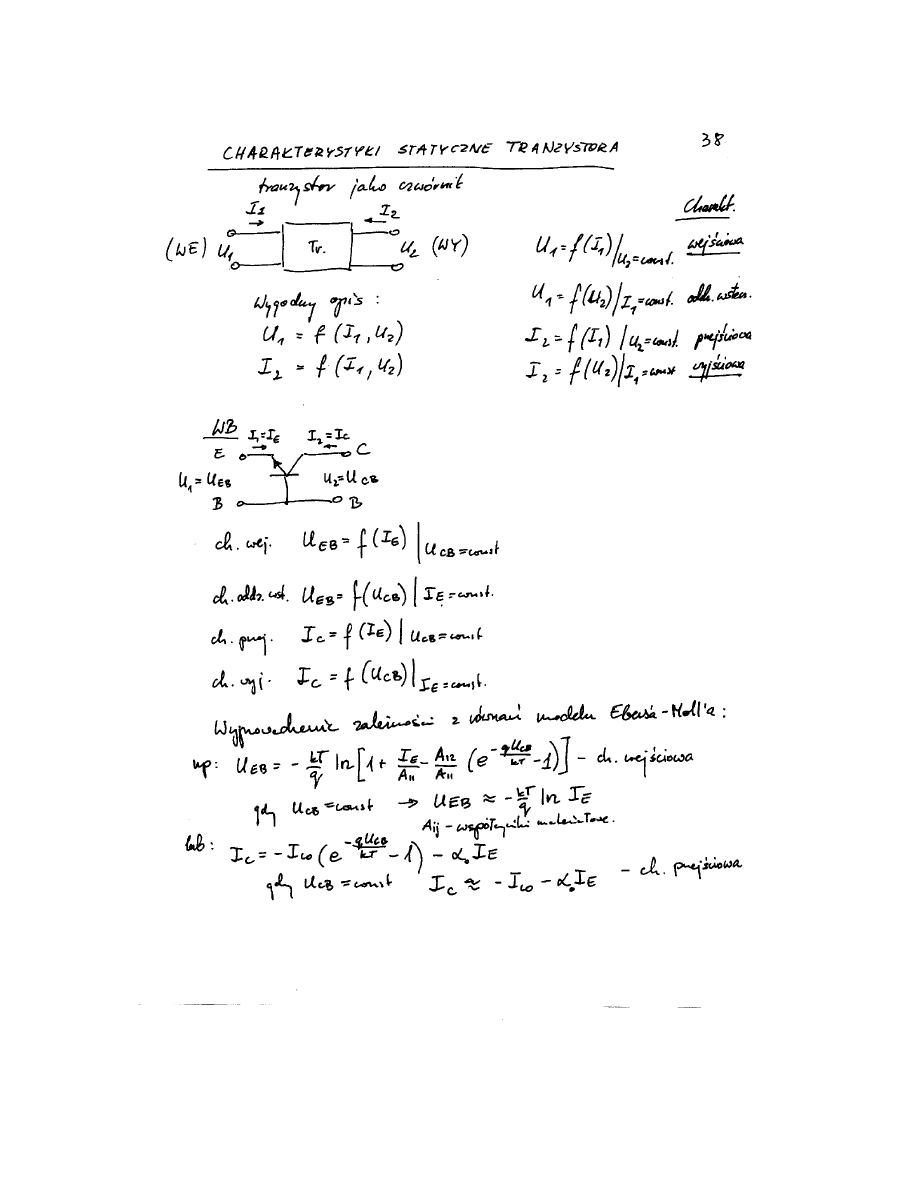 38
CHARAKTERYSTYKI STATYCZNE TRANZYSTORA
tranzystor jako czwórnik
I1 I2
(WE) U1 Tr. U2 (WY)
Wygodny opis :
U1 = f (I1, U2)
I2 = f (I1, U2)
Charakt.
U1 = f(I1)/U2=const. wejściowa
U1 = f(U2)/I1=const. oddz. wstecz.
I2 = f(I1) /U2=const. przejściowa
I2 = f(U2)/I1=const wyjściowa
WB
I1=IE I2=Ic
E C
U1=UEB U2=UCB
B B
ch. wej. UEB = f (IE) | UCB=const
ch. oddz. wst. UEB= f(UCB) | IE=const.
ch. przej. Ic = f (IE) | UCB=const
ch. wyj. Ic = f (UCB)| IE=const.
Wyprowadzenie zależności z równań modelu Ebersa-Moll'a :
np: UEB = - kT/q ln[1+ IE/A11 - A12/A11 (e^-qUCB/kT -1)] - ch. wejściowa
gdy UCB=const → UEB ≈ - kT/q ln IE
Aij - współczyniki materiałowe.
lub : Ic = -Ico (e^-qUCB/kT - 1) - α0 IE
gdy UCB = const Ic ≈ - Ico - α0 IE - ch. przejściowa